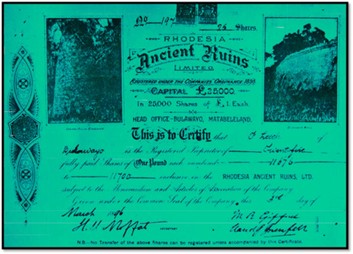 No 197
25 Shares
RHODESIA
Ancient Ruins
LIMITED
REGISTERED UNDER THE COMPANIES ORDINANCE 1895
CAPITAL £25,000.
IN 25000 SHARES OF £1 EACH
HEAD OFFICE - BULAWAYO, MATABELELAND.
This is to Certify that of
Bulawayo is the Registered Proprietor of Twenty five
fully paid Shares of One Pound each numbered 11676
to 11700 inclusive in the RHODESIA ANCIENT RUINS, LTD.
subject to the Memorandum and Articles of Association of the Company
Given under the Common Seal of the Company this 3rd day of
March 1896
N.B.- No Transfer of the above Shares can be registered unless accompanied by this Certificate.